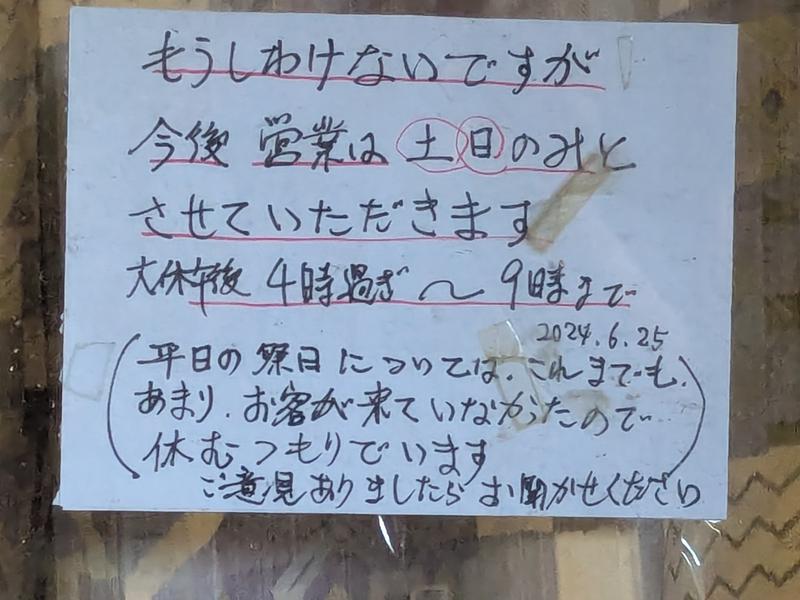 もうしわけないですが
今後 営業は 土日のみと
させていただきます
大体午後 4時過ぎ〜 9時まで
2024.6.25
(平日の祭日については、これまでも、
あまり、お客が来ていなかったので
休むつもりでいます)
ご意見ありましたらお聞かせください